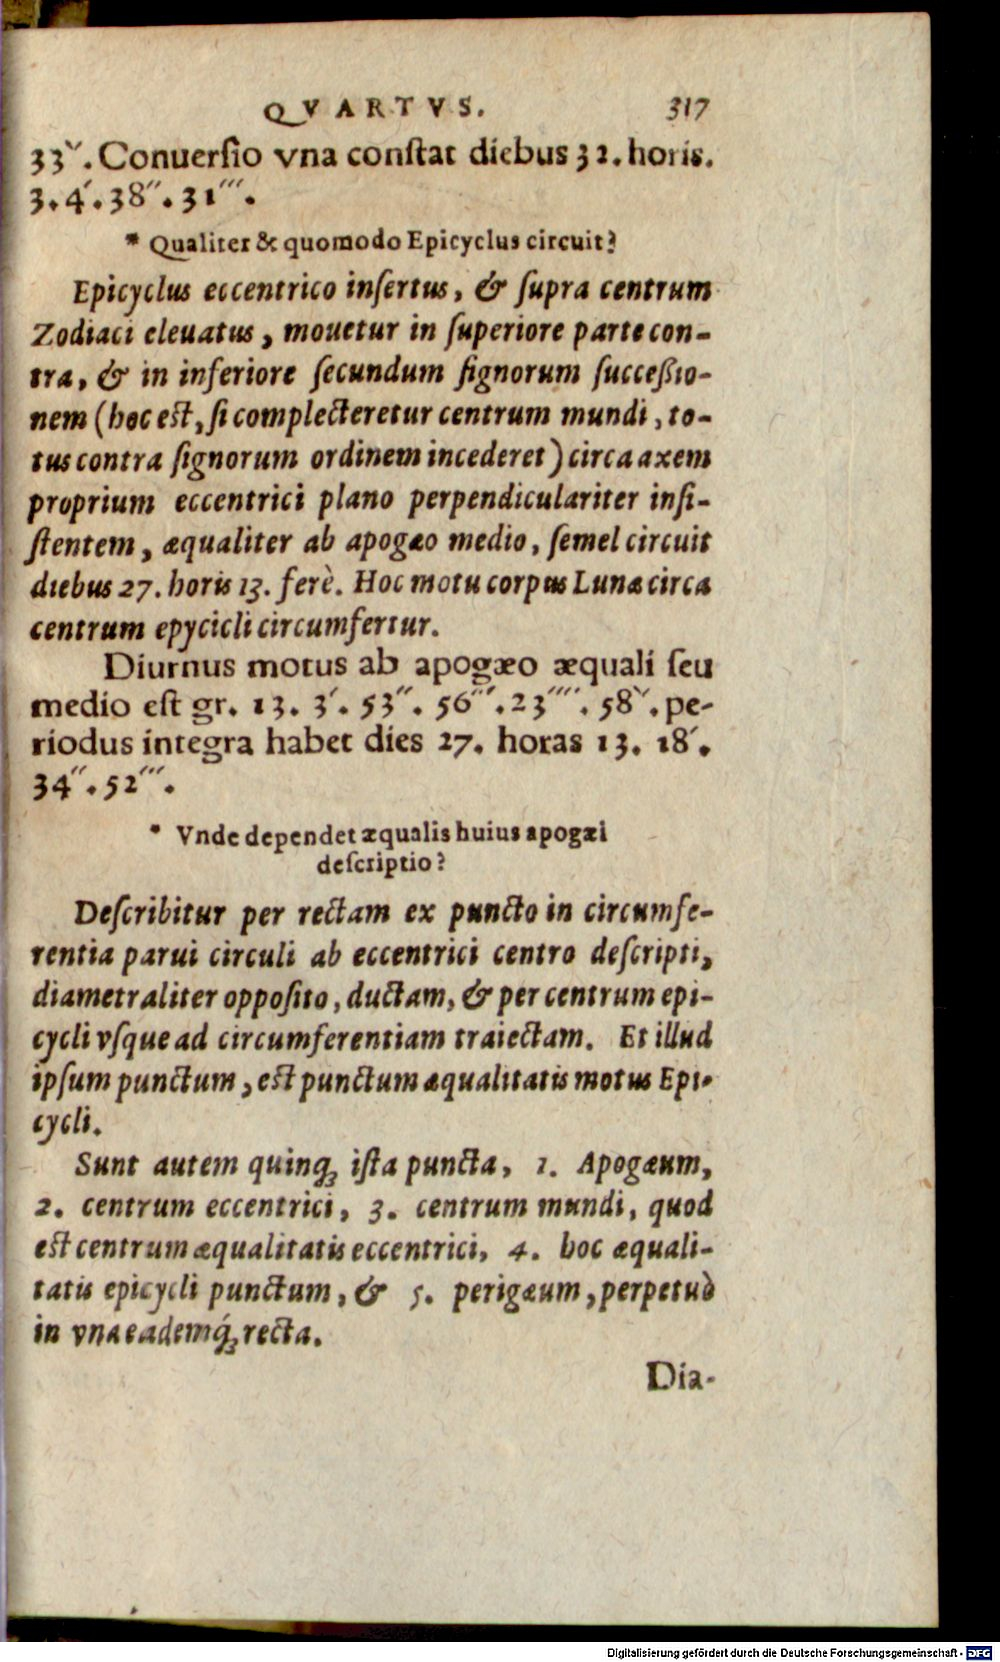 QVARTVS. 317
33v. Conuersio vna constat diebus 32. horis.
3. 4′. 38″. 31‴.
* Qualiter & quomodo Epicyclus circuit?
Epicyclus eccentrico insertus, & supra centrum
Zodiaci eleuatus, mouetur in superiore parte con-
tra, & in inferiore secundum signorum successio-
nem (hoc est, si complecteretur centrum mundi, to-
tus contra signorum ordinem incederet) circa axem
proprium eccentrici plano perpendiculariter insi-
stentem, æqualiter ab apogæo medio, semel circuit
diebus 27. horis 13. ferè. Hoc motu corpus Lunæ circa
centrum epycicli circumfertur.
Diurnus motus ab apogæo æquali seu
medio est gr. 13. 3′. 53″. 56‴. 23⁗. 58v. pe-
riodus integra habet dies 27. horas 13. 18′.
34″. 52‴.
* Vnde dependet æqualis huius apogæi
descriptio?
Describitur per rectam ex puncto in circumfe-
rentia parui circuli ab eccentrici centro descripti,
diametraliter opposito, ductam, & per centrum epi-
cycli vsque ad circumferentiam traiectam. Et illud
ipsum punctum, est punctum æqualitatis motus Epi-
cycli.
Sunt autem quinq́; ista puncta, 1. Apogæum,
2. centrum eccentrici, 3. centrum mundi, quod
est centrum æqualitatis eccentrici, 4. hoc æquali-
tatis epicycli punctum, & 5. perigæum, perpetuò
in vna eademq́; recta.
Dia-
Digitalisierung gefördert durch die Deutsche Forschungsgemeinschaft - DFG